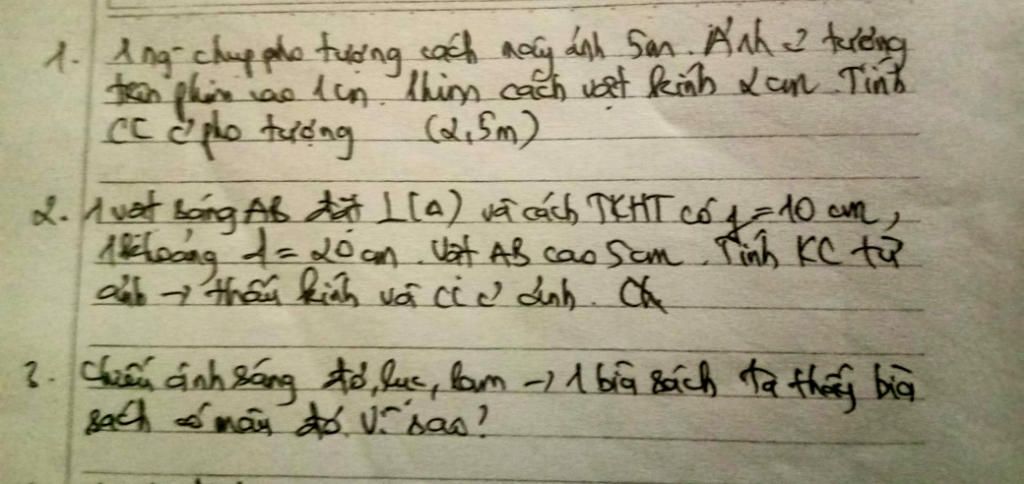 1. 1 ng` chụp pho tượng cách máy ảnh 5m. Ảnh ? tượng
trên phim cao 1cm. Phim cách vật kính 2cm. Tính
CC ? pho tượng (2,5m)
2. 1 vật sáng AB đặt ⊥(Δ) và cách TKHT có f = 10 cm,
1 khoảng d = 20cm. Vật AB cao 5cm. Tính KC từ
ảnh → thấu kính và CC ? ảnh.
3. Chiếu ánh sáng đỏ, lục, lam → 1 bìa sách ta thấy bìa
sách có màu đỏ. Vì sao?